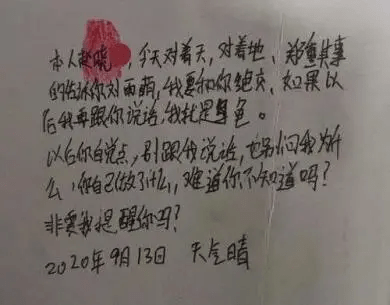 本人赵晓，今天对着天，对着地、郑重其事
的告诉你刘雨萌，我要和你绝交、如果以
后我再跟你说话，我就是角色。
以后你自觉点，别跟我说话，也别问我为什
么，你自己做了什么，难道你不知道吗？
非要我提醒你吗？
2020年9月13日 天气晴